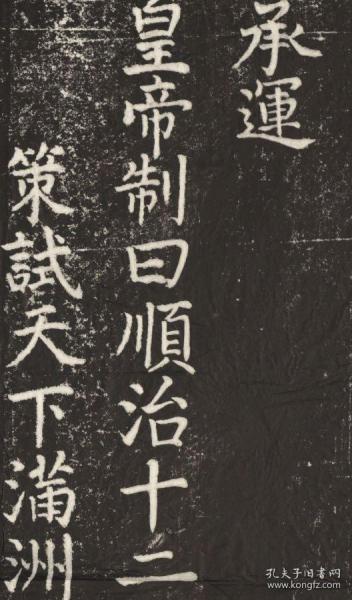 承運
皇帝制曰順治十二
策試天下滿洲
孔夫子旧书网
www.kongfz.com